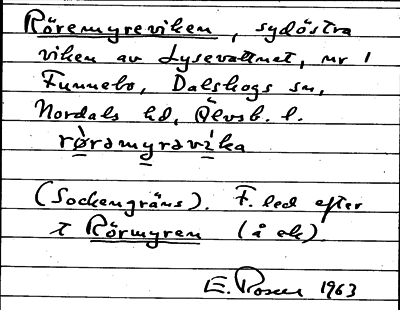 Röremyreviken, sydöstra
viken av Lysevattnet, nr 1
Funnebo, Dalskogs sn,
Nordals hd, Älvsb. l.
rø̀ramyravika
(Sockengräns). F. led efter
Rörmyren (å ek).
E. Rosell 1963